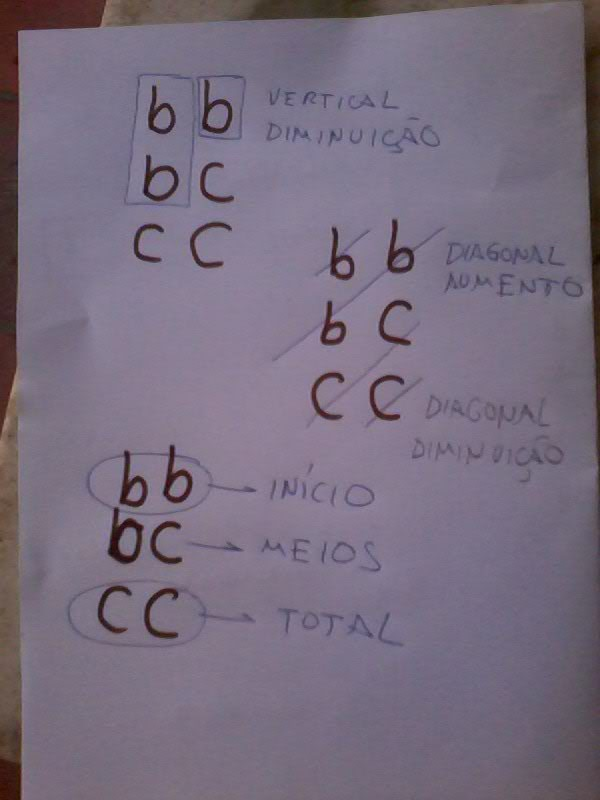 b b VERTICAL
DIMINUIÇÃO
b C
C C
b b DIAGONAL
AUMENTO
b C
C C DIAGONAL
DIMINUIÇÃO
b b → INÍCIO
b C → MEIOS
C C → TOTAL